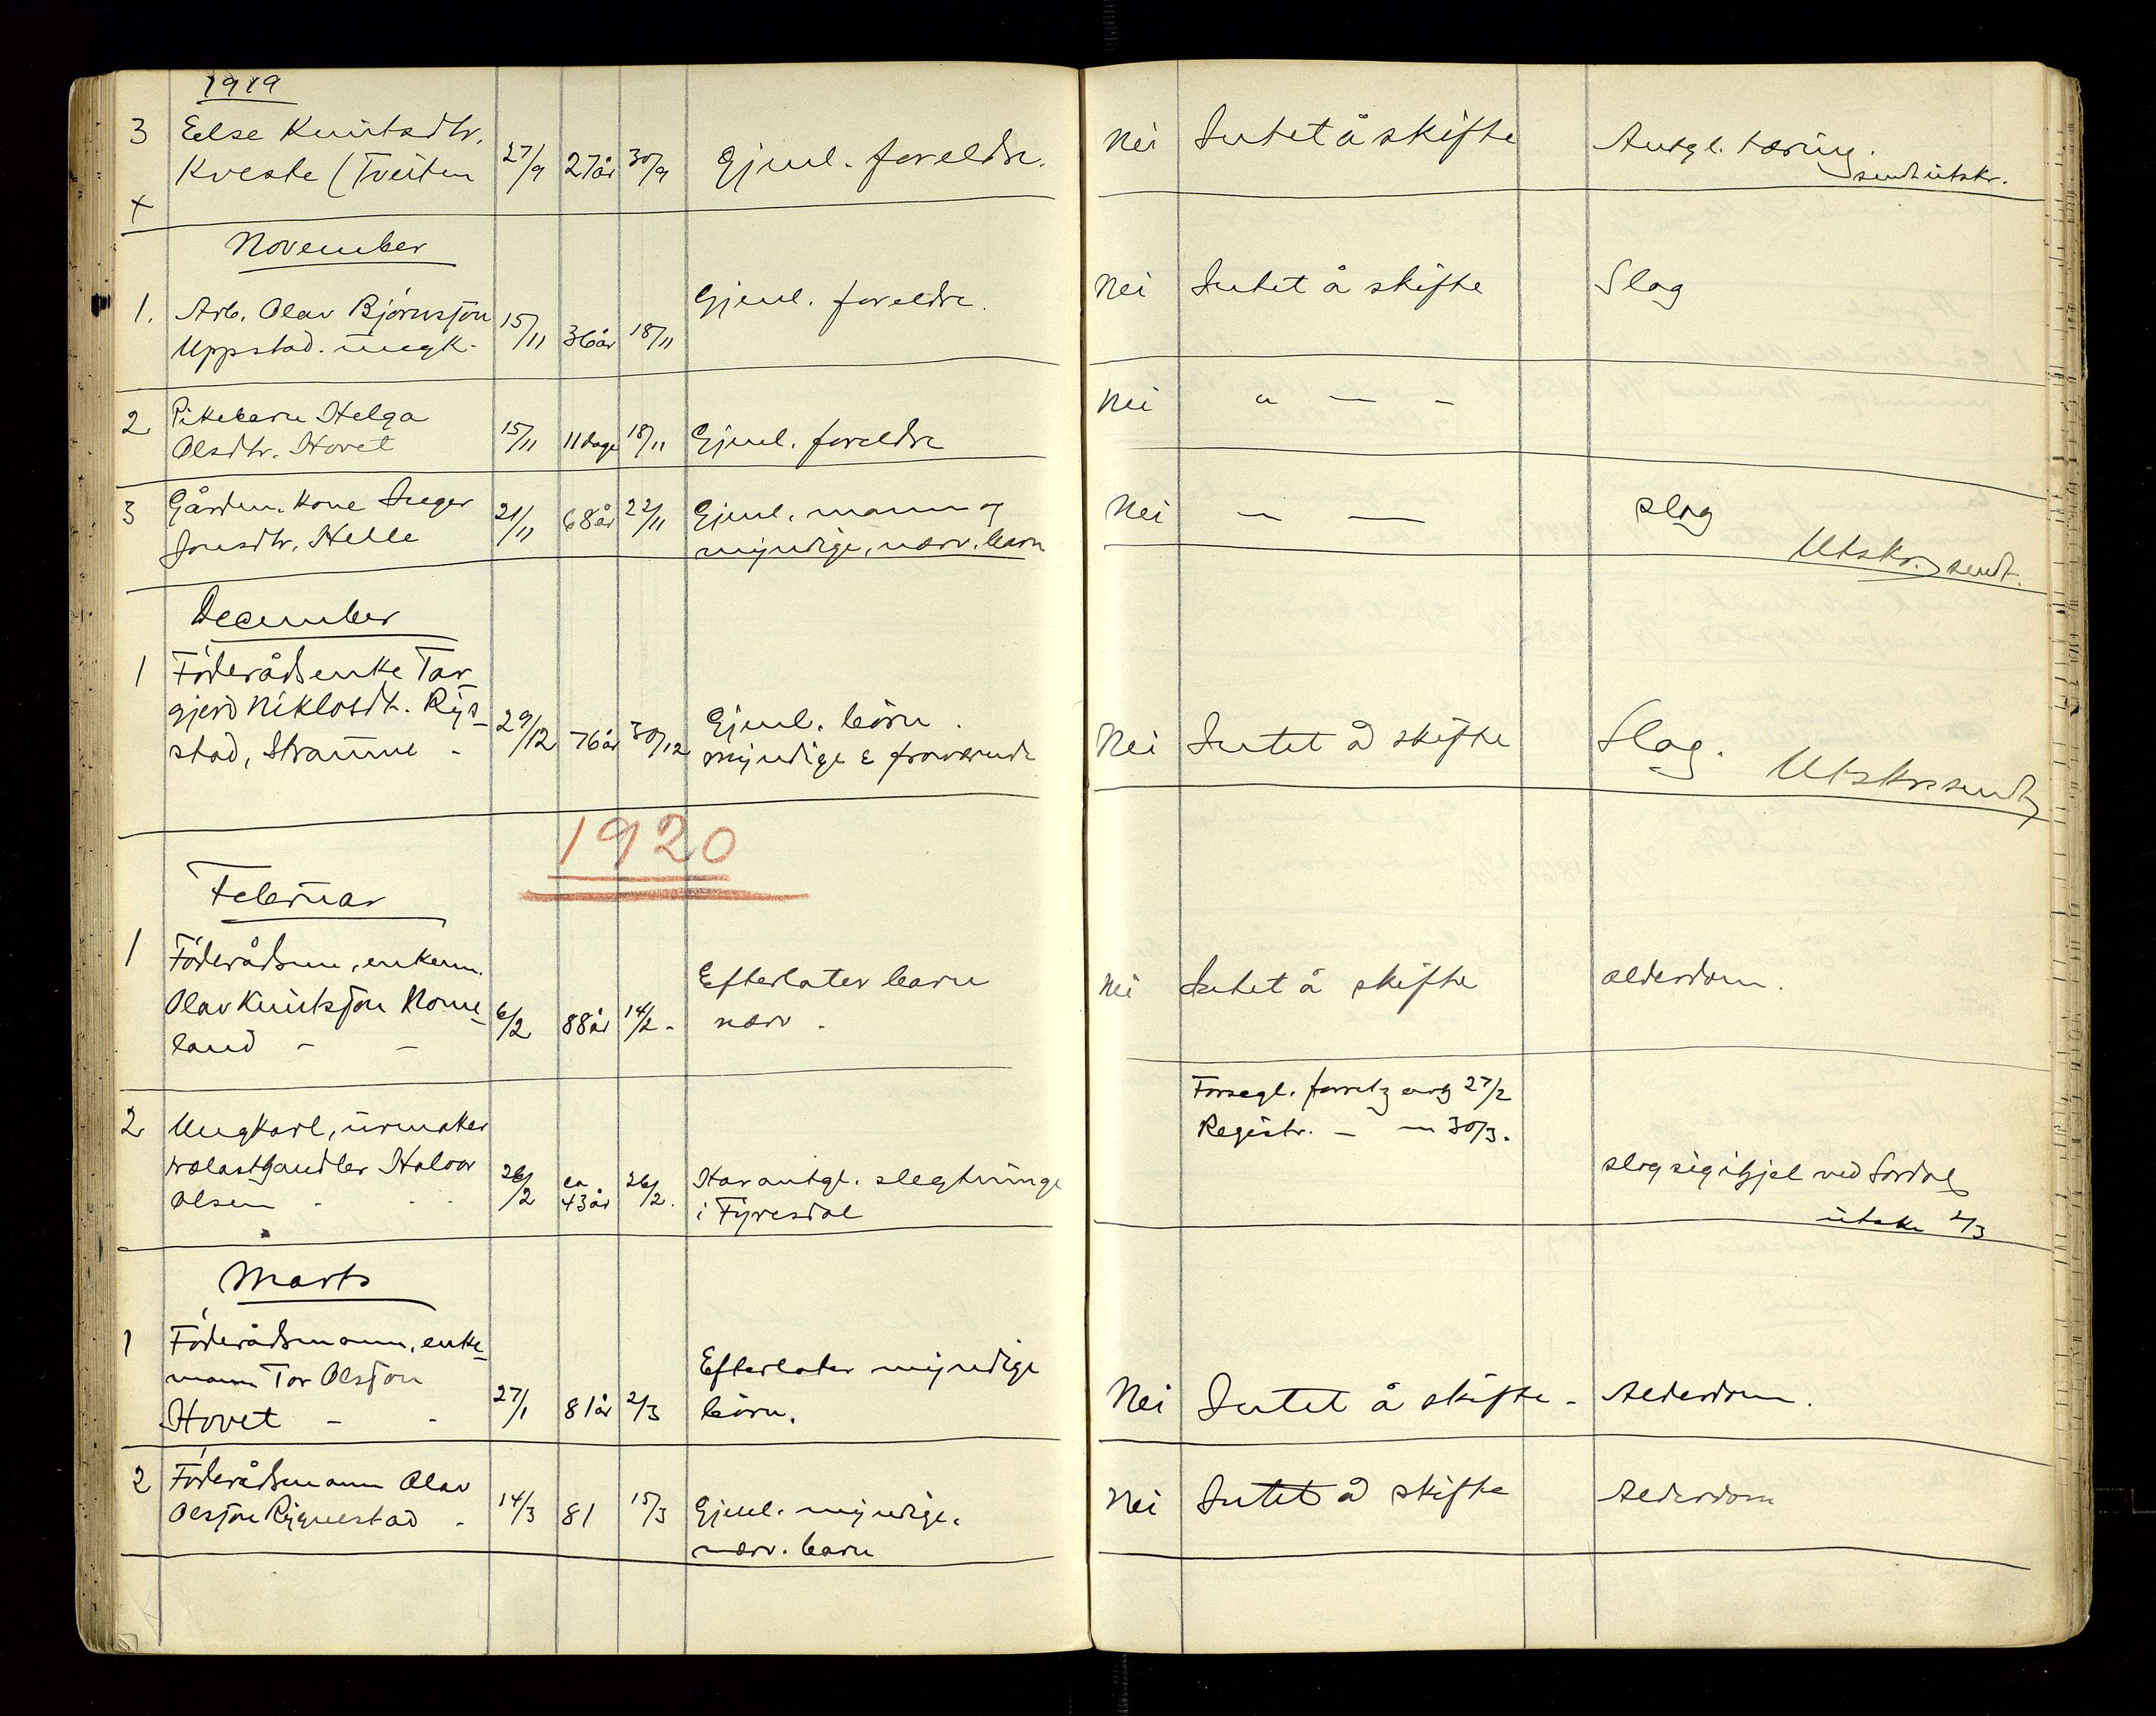 1919
3 Eelse Knutsdtr.
Kveste (Tveiten 27/9 27 år 30/9 Gjenl. foreldre. Nei Intet å skifte Antgl. tæring.
sendt utskr.
+
November
1. Arb. Olav Bjørnsson
Uppstad. ungk. 15/11 36 år 18/11 Gjenl. foreldre. Nei Intet å skifte Slag
2 Pikebarn Helga
Olsdtr. Hovet 15/11 11 dage 18/11 Gjenl. foreldre Nei " — -
3 Gårdm. kone Inger
Jonsdtr. Helle 21/11 68 år 22/11 Gjenl. mann og
myndige, nærv. barn Nei — — slag
Utskr. sendt.
December
1 Föderådsenke Tar
gjerd Niklosdt. Rys-
stad, Straume - 29/12 76 år 30/12 Gjenl. börn.
myndige & fraværende Nei Intet å skifte Slag.
Utskr sendt
1920
Februar
1 Föderådsm, enkem.
Olav Knutsson Home-
land - - 6/2 88 år 14/2 - Efterlater barn
nærv. Nei Intet å skifte alderdom.
2 Ungkarl, urmaker
trælasthandler Halvor
Olsen - 26/2 ca 43 år 26/2. Har antgl. slegtninge
i Fyresdal
Forsegl. 27/2
Registr. — — 30/3.
slog sig ihjel ved
utskr 2/3
Marts
1 Föderådsmann, enke-
mann Tor Olsson
Hovet - - 27/1 81 år 2/3 Efterlater myndige
börn. Nei Intet å skifte - Alderdom.
2 Föderådsmann Olav
Olsson Rygnestad - 14/3 81 15/3 Gjenl. myndige.
nærv. barn Nei Intet å skifte Alderdom